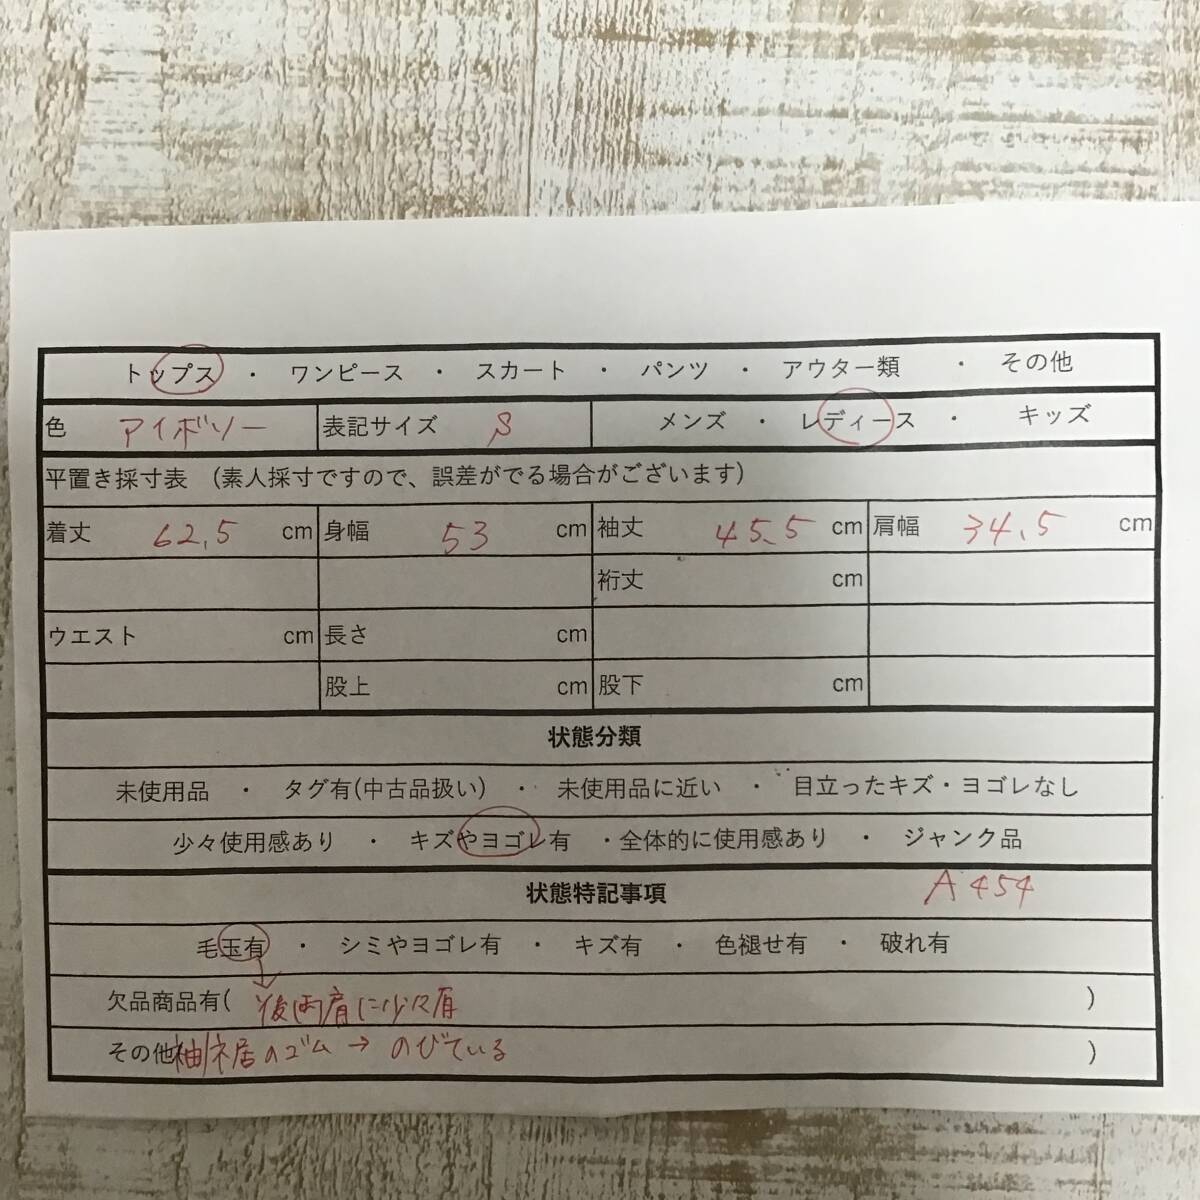 トップス ・ ワンピース ・ スカート ・ パンツ ・ アウター類 ・ その他
色 アイボリー 表記サイズ S メンズ ・ レディース ・ キッズ
平置き採寸表 (素人採寸ですので、誤差がでる場合がございます)
着丈 62.5 cm 身幅 53 cm 袖丈 45.5 cm 肩幅 34.5 cm
裄丈 cm
ウエスト cm 長さ cm
股上 cm 股下 cm
状態分類
未使用品 ・ タグ有(中古品扱い) ・ 未使用品に近い ・ 目立ったキズ・ヨゴレなし
少々使用感あり ・ キズやヨゴレ有 ・全体的に使用感あり ・ ジャンク品
状態特記事項 A454
毛玉有 ・ シミやヨゴレ有 ・ キズ有 ・ 色褪せ有 ・ 破れ有
欠品商品有( 後両肩に少々有 )
その他 袖裾のゴム → のびている )